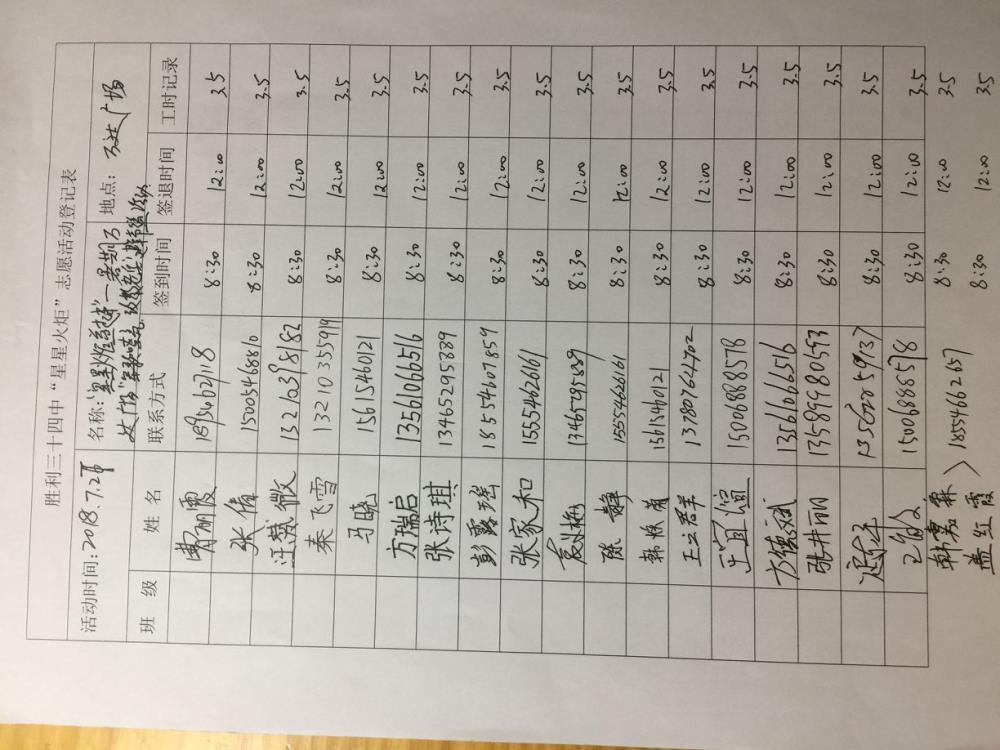 胜利三十四中“星星火炬”志愿活动登记表
活动时间:2018.7.28 名称:“星星火炬 一暑期万 地点: 万达广场
达广场
班 级 姓 名 联系方式 签到时间 签退时间 工时记录
曹丽霞 18954627108 8:30 12:00 3.5
张倩 15005468810 8:30 12:00 3.5
汪葳薇 13210398182 8:30 12:00 3.5
秦飞雪 13210335919 8:30 12:00 3.5
马晓 15615460121 8:30 12:00 3.5
方瑞启 13561066516 8:30 12:00 3.5
张诗琪 13465295889 8:30 12:00 3.5
彭露瑶 18554607859 8:30 12:00 3.5
张家和 15554626661 8:30 12:00 3.5
袁 梅 13465295889 8:30 12:00 3.5
陈静 8:30 12:00 3.5
韩 15615460121 8:30 12:00 3.5
王云群 13780764702 8:30 12:00 3.5
王宜谊 15006888578 8:30 12:00 3.5
方德斌 13561066516 8:30 12:00 3.5
张井丽 13589980593 8:30 12:00 3.5
8:30 12:00 3.5
15006888578 8:30 12:00 3.5
韩嘉霖 8:30 12:00 3.5
18554662657
盖红霞 8:30 12:00 3.5